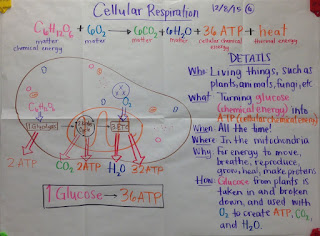 Cellular Respiration
12/8/15 6
C6H12O6 + 6O2 → 6CO2 + 6H2O + 36 ATP + heat
matter chemical energy matter matter matter cellular chemical energy thermal energy
DETAILS
Who: Living things, such as
plants, animals, fungi, etc.
What: Turning glucose
(chemical energy) into
ATP (cellular chemical energy)
When: All the time!
Where: In the mitochondria
Why: For energy to move,
breathe, reproduce,
grow, heal, make proteins
How: Glucose from plants is
taken in and broken
down, and used with
O2 to create ATP, CO2,
and H2O.
C6H12O6
O2
1 Glycolysis
3 ETC
2 ATP
CO2
2 ATP
H2O
32 ATP
1 Glucose → 36 ATP